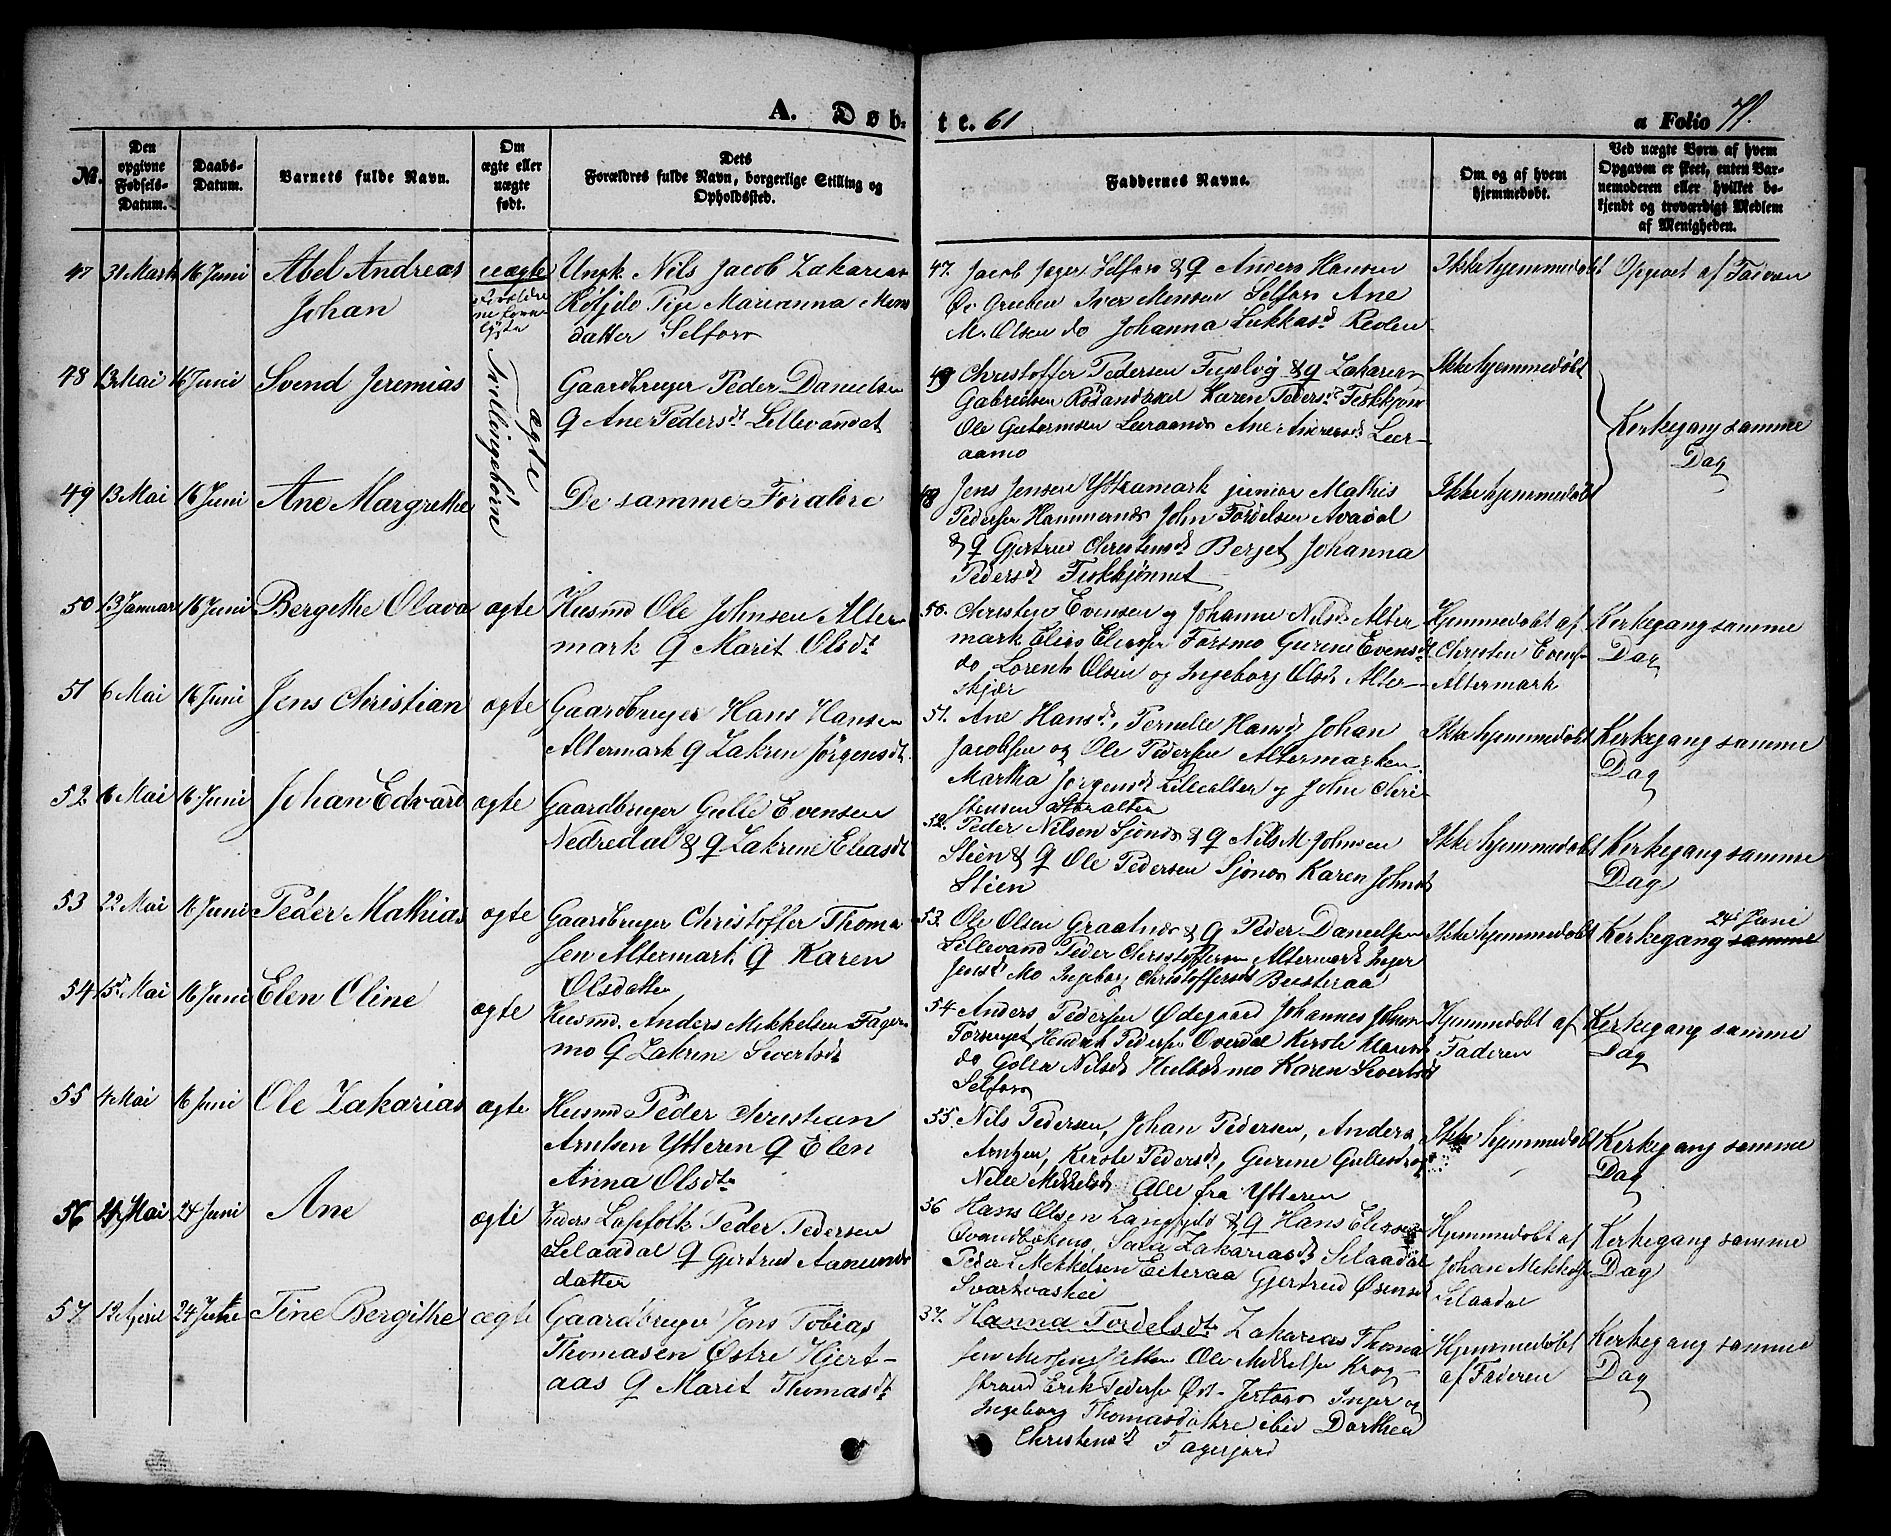 A. Døb-
te. 61
a Folio 71.
No.
Den opgivne Fødsels-Datum.
Daabs-Datum.
Barnets fulde Navn.
Om ægte eller uægte født.
Dets Forældres fulde Navn, borgerlige Stilling og Opholdssted.
Faddernes Navne.
Om og af hvem hjemmedøbt.
Ved uægte Børn af hvem Opgaven er skeet, enten Barnemoderen eller hvilket bekjendt og troværdigt Medlem af Menigheden.
47 31 Marts 16 Juni Abel Andreas Johan
uægte
Ungk. Nils Jacob Zakarias
Pige Marianna Mons
datter Selfors
47. Jacob Jeger Selfors & Q Anders Hansen
Gruben Iver Monsen Selfors Ane
M. Olsen do Johanna Lukkasd
Ikke hjemmedøbt
Opgivet af Faderen
48 13 Mai 16 Juni Svend Jeremias
Tvillingebørn ægte
Gaardbruger Peder Danielsen
Q Ane Pedersdt Lillevandat
49 Christoffer Pedersen & Q Zakarias
Gabrielsen Karen Pedersd Fiskkjøn
Ole Gutormsen Leiraanes Ane Andersd Leer-
aamo
Ikke hjemmedøbt
Kirkegang samme
Dag
49 13 Mai 16 Juni Ane Margrethe
De samme Forældre
48 Jens Jensen Yttramark junior Mathis
Pedersen Hammernes John Tordelsen Avadal
& Q Gjertrud Christensdt Berjet Johanna
Pedersdt Fiskkjønnet
Ikke hjemmedøbt
50 13 Januar 16 Juni Bergethe Olava ægte
Husmd Ole Johnsen Alter
mark Q Marit Olsdt
50. Christen Evensen og Johanna Nilsd Alter
mark Elias Eliasen Forsmo Gurine Evensd
do Lorents Olsen og Ingeborg Olsdt Alter-
skjær
Hjemmedøbt af
Christen Evens-
Altermark
Kirkegang samme
Dag
51 6 Mai 16 Juni Jens Christian ægte
Gaardbruger Hans Hansen
Altermark Q Zakrin Jørgensdt
51. Ane Hansd, Pernille Hansd Johan
Jacobsen og Ole Pedersen Altermarken
Martha Jørgensd Lillealter og John Chri-
stensen Storalter
Ikke hjemmedøbt
Kirkegang samme
Dag
52 6 Mai 16 Juni Johan Edvard ægte
Gaardbruger Gulle Evensen
Nedredal & Q Zakrine Eliasdt
52. Peder Nilsen Sjonds & Q Nils M Johnsen
Stien & Q Ole Pedersen Sjonds Karen Johnsd
Stien
Ikke hjemmedøbt
Kirkegang samme
Dag
53 22 Mai 16 Juni Peder Mathias ægte
Gaardbruger Christoffer Thoma
sen Altermark Q Karen
Olsdatter
53. Ole Olsen Graatnes & Q Peder Danielsen
Lillevand Peder Christoffersen Altermark Inger
Jensd Mo Ingeborg Christoffersdt Busteraa
Ikke hjemmedøbt
24d Juni
Kirkegang samme
54 15d Mai 16 Juni Elen Oline ægte
Husmd. Anders Mikkelsen Fager
mo Q Zakrine Sivertsdt
54 Anders Pedersen Ødegaard Johannes Johan
Henrik Pedersen Overdal Kirste
do Golla Nilsdt Karen Sivertsdt
Selfors
Hjemmedøbt af
Faderen
Kirkegang samme
Dag
55 4 Mai 16 Juni Ole Zakarias ægte
Husmd Peder Christian
Arntsen Ytteren Q Elen
Anna Olsdtr
55. Nils Pedersen, Johan Pedersen, Anders
Arntzen, Kirste Pedersdt, Gurine Gullesd og
Nille Mikkelsd Alle fra Ytteren
Ikke hjemmedøbt
Kirkegang samme
Dag
56 14 Mai 24 Juni Ane ægte
Lapfolk Peder Pedersen
Selaadal Q Gjertrud Aamunds
datter
56 Hans Olsen & Q Hans Eliasen
Sara Zakariasdt Selaadal
Peder Mikkelsen Eiteraa Gjertrud
Svartvashei
Hjemmedøbt af
Johan Mikkelse
Selaadal
Kirkegang samme
Dag
57 12 April 24 Juni Tine Bergithe ægte
Gaardbruger Jens Tobias
Thomasen Østre Hjert-
aas Q Marit Thomasdt
57. Hanna Tordelsdtr Zakarias Thoma
sen Ole Mikkelsen Krog-
strand Erik Pedersen Inger og
Ingeborg Thomasdøttre ibid Dorthea
Christensdt Fagerjord
Hjemmedøbt
af Faderen
Kirkegang samme
Dag